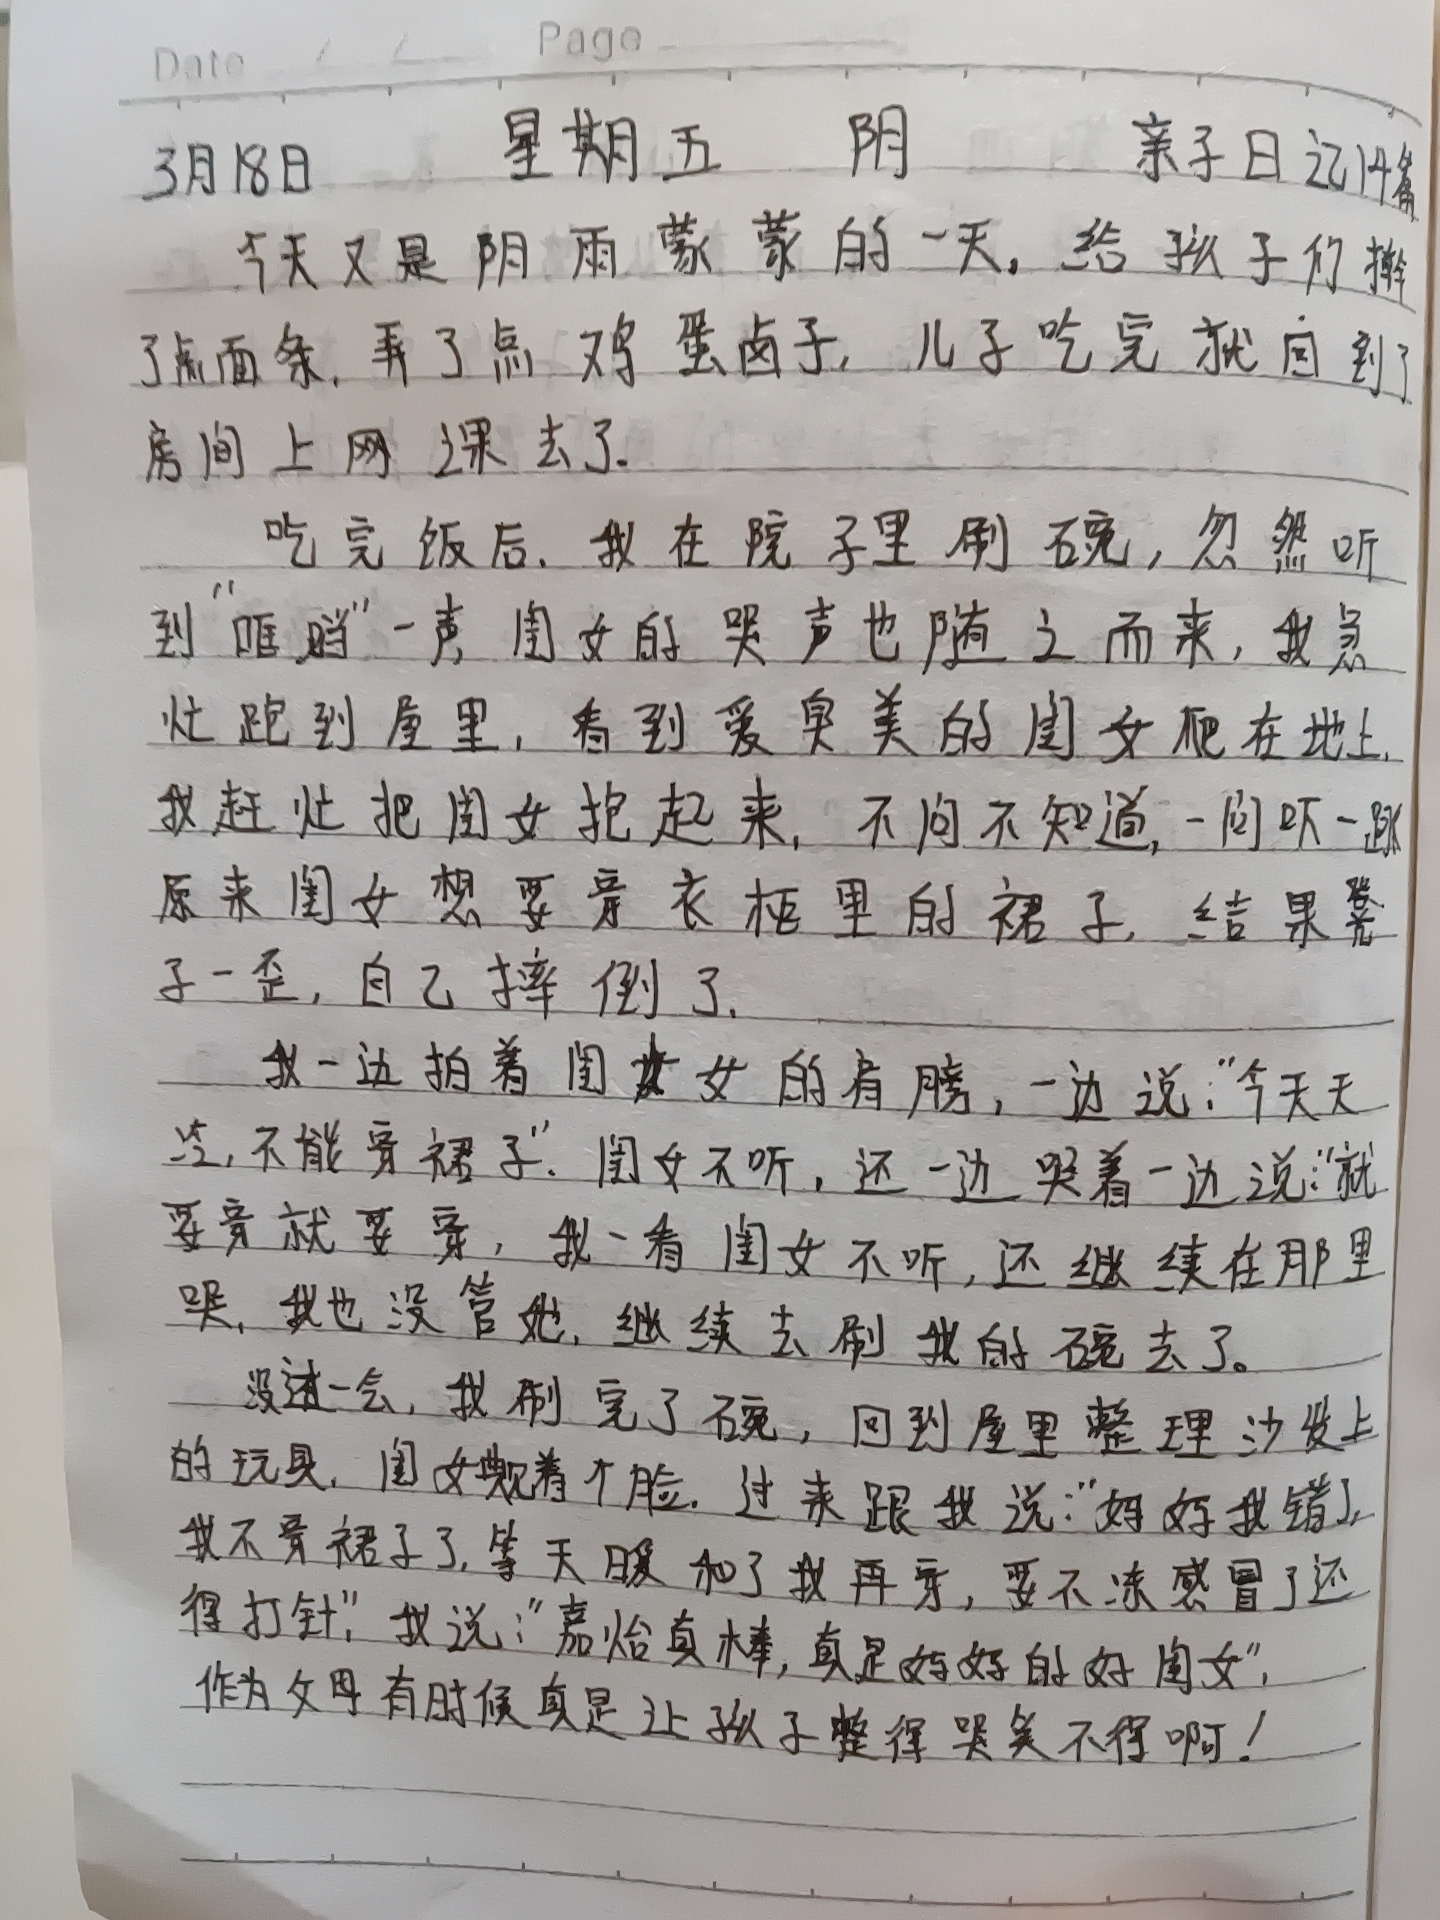 Date / / Page
3月18日 星期五 阴 亲子日记14篇
今天又是阴雨蒙蒙的一天。给孩子们擀
了点面条,弄了点鸡蛋卤子,儿子吃完就回到了
房间上网课去了.
吃完饭后.我在院子里刷碗,忽然听
到"哐当"一声,闺女的哭声也随之而来,我急
忙跑到屋里,看到爱臭美的闺女爬在地上.
我赶忙把闺女抱起来,不问不知道,一问吓一跳
原来闺女想要穿衣柜里的裙子,结果凳
子一歪,自己摔倒了.
我一边拍着闺女的肩膀,一边说:"今天天
冷,不能穿裙子".闺女不听,还一边哭着一边说:"就
要穿就要穿,我一看闺女不听,还继续在那里
哭,我也没管她,继续去刷我的碗去了。
没过一会,我刷完了碗,回到屋里整理沙发上
的玩具,闺女觍着个脸.过来跟我说:"妈妈我错了,
我不穿裙子了,等天暖和了我再穿,要不冻感冒了还
得打针",我说:"嘉怡真棒,真是妈妈的好闺女",
作为父母有时候真是让孩子整得哭笑不得啊!